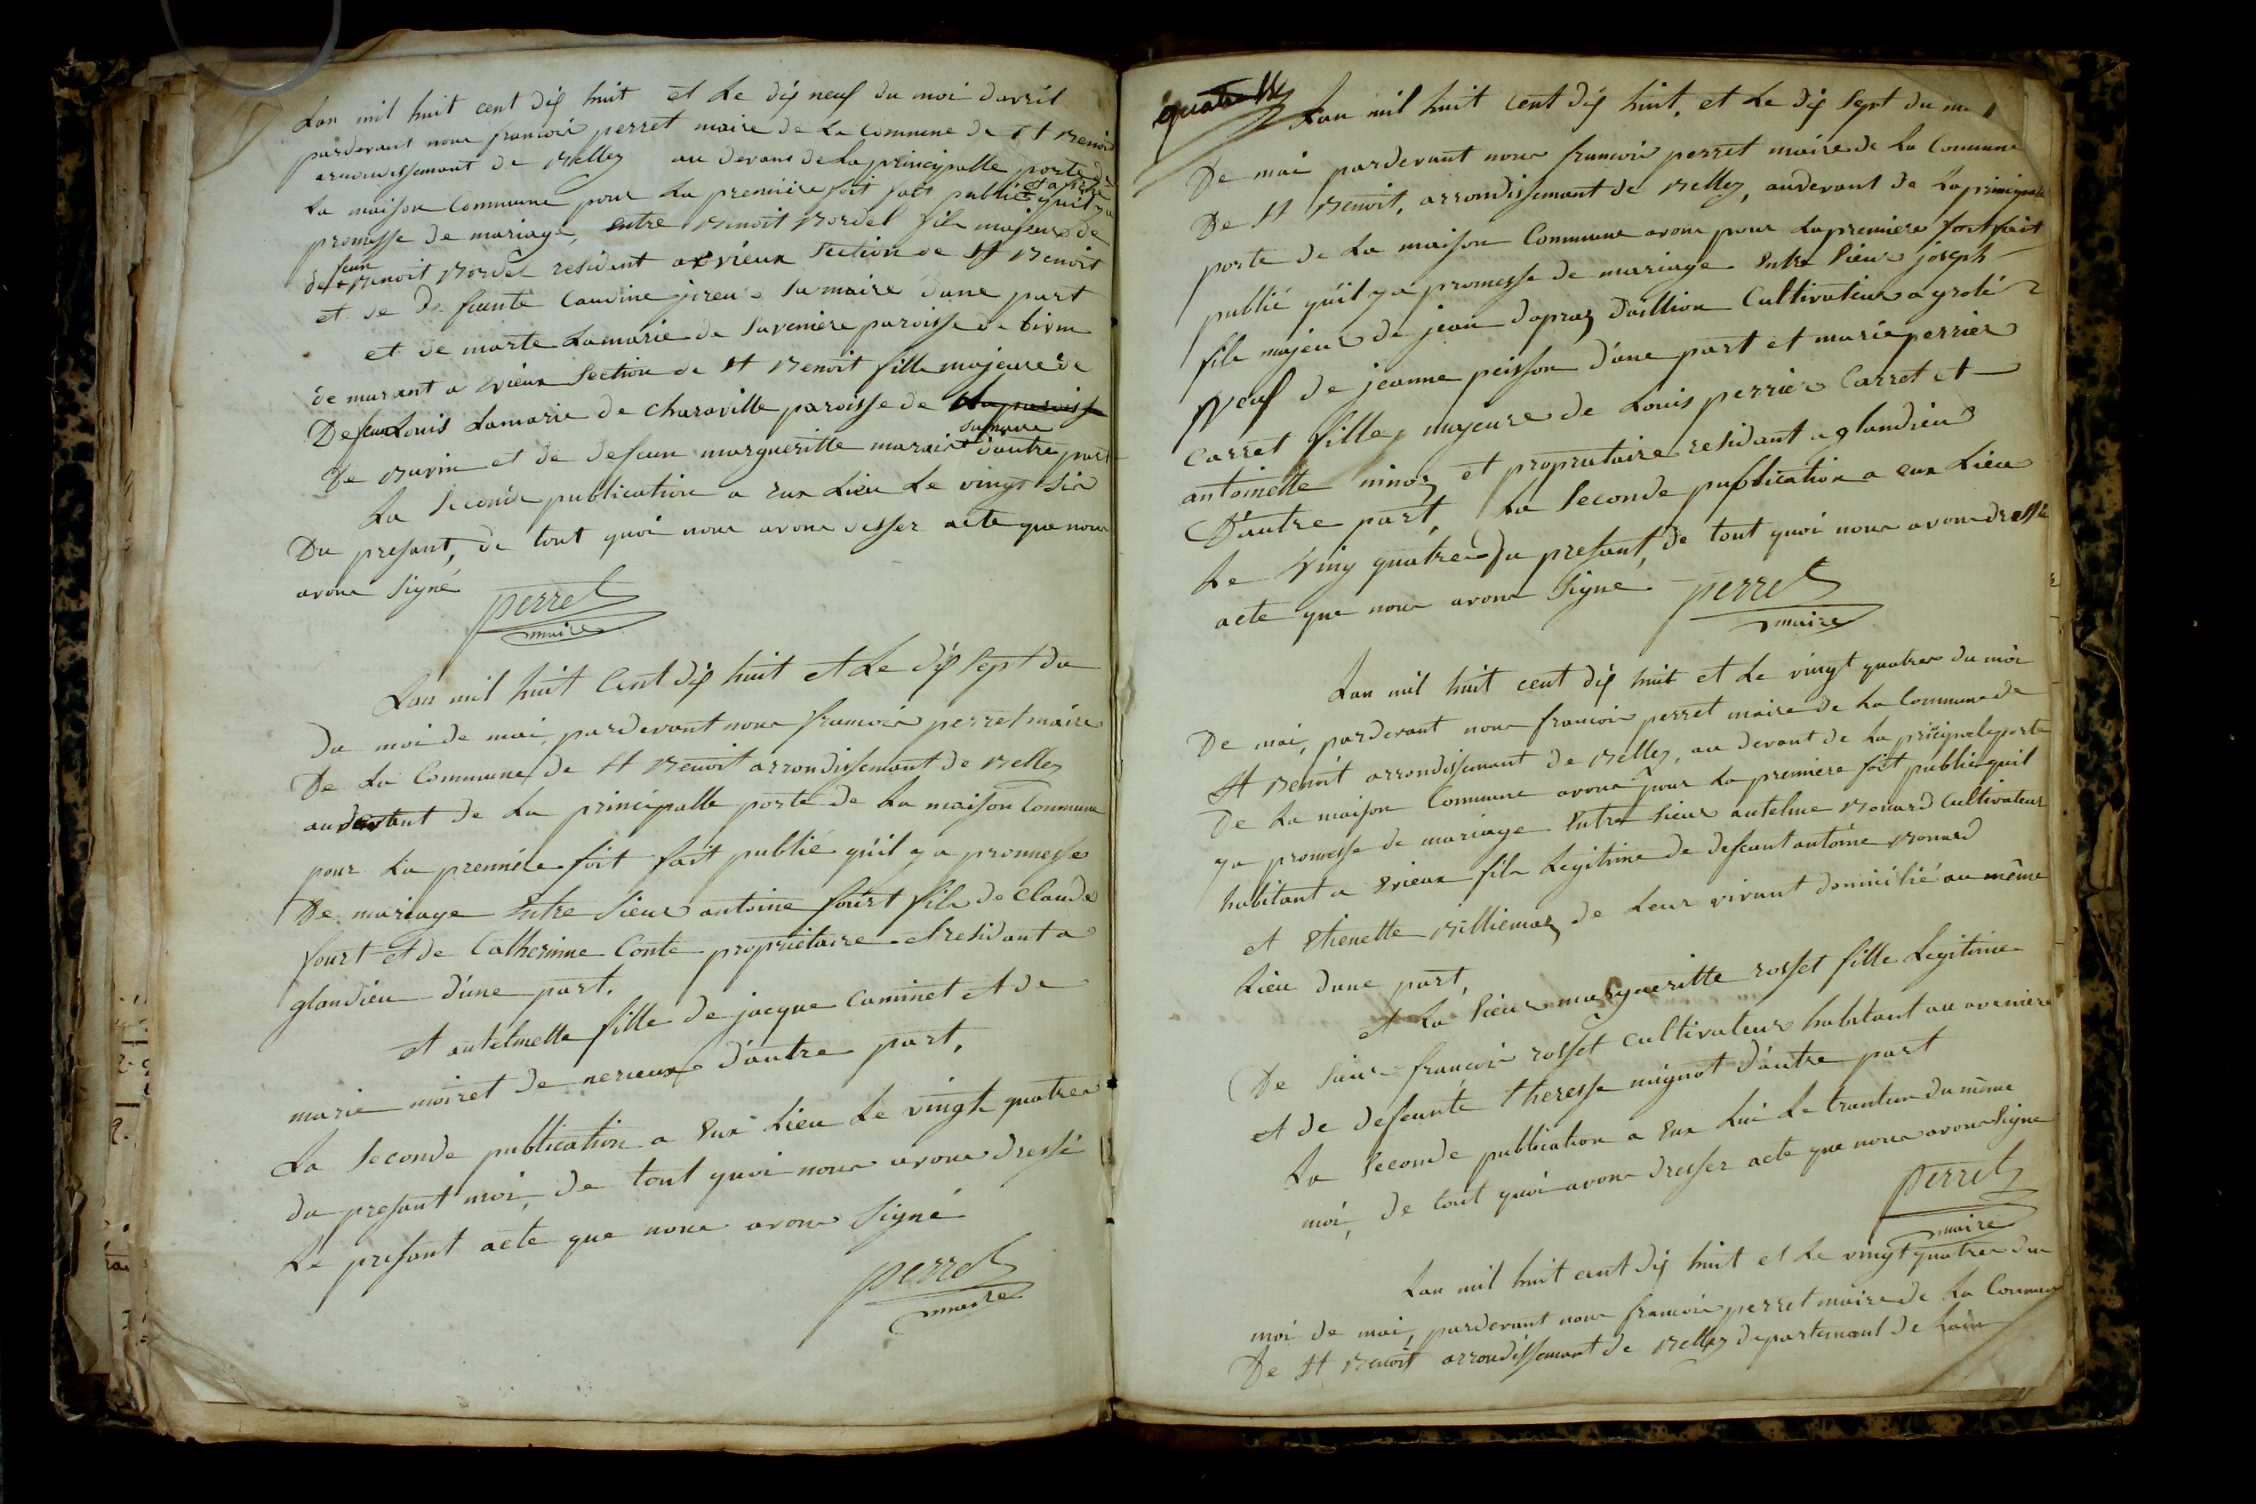 Lan mil huit cent dix huit et Le dix neuf du moi davril
pardevant nous francois perret maire de La Commune de St Benoit
arrondissement de Belley au devant de La principalle porte de
La maison Commune pour La premiere foit fait publié et afiché quil ya
promesse de mariage, entre Benoit Bordel fils majeur de
de feu Benoit Bordel resident a Evieux Section de St Benoit
et de De feunte Caudine sa maire dune part
et de marte Lamarie de Saveniere paroisse de
demurant a Evieux Section de St Benoit fille majeure de
Defeun Louis Lamarie de Charaville paroisse de La paroisse
De et de defeun margueritte sa maire dautre part
La Seconde publication a eux Lieu Le vingt Six
Du presant, de tout quoi nous avons desser acte que nous
avons Signé
perret
maire
Lan mil huit Cent dix huit et Le dix Sept du
du moi de mai, pardevant nous francois perret maire
De La Commune de St Benoit arrondissement de Belley
au devant de La principalle porte de La maison Commune
pour La premiere foit fait publié quil y a promesse
De mariage Entre Sieur antoine fourt fils de Claude
fourt et de Catherinne Conte propriétaire et residant a
glandieu d'une part.
et antelmette fille de jacque Caminet et de
marie moiret de nerieux d'autre part.
La Seconde publication a Eux Lieu Le vingt quatre
du presant moi, de tout quoi nous avons dressé
Le presant acte que nous avons Signé
perret
maire
quatre
Lan mil huit Cent dix huit, et Le dix Sept du m
De mai pardevant nous francois perret maire de La Commune
De St Benoit, arrondissement de Belley, audevant de La principale
porte de La maison Commune avons pour La premiere foit fait
publié qu'il y a promesse de mariage Entre Sieur joseph
fils majeur de jean dapraz Daillion Cultivateur a grolé
Veuf de jeanne peisson d'une part et marie perrier
Carret fille majeure de Louis perrier Carret et
antoinette ninoz et propriutaire residant a glandieu
D'autre part, La Seconde publication a eux Lieu
Le Ving quatre Du presant, de tout quoi nous avons dressé
acte que nous avons Signé perret
maire
Lan mil huit cent dix huit et Le vingt quatre du moi
De mai, pardevant nous francois perret maire de La Commune de
St Benoit arrondissement de Belley, au devant de La pricipale porte
De La maison Commune avons pour La premiere foit publié quil
y a promesse de mariage Entre Sieur antelme Bonard Cultivateur
habitant a Evieux fils Legitime de defeunt antoine Bonard
et Etienette Billiemaz de Leur vivant domicilié au même
Lieu dune part,
et La Sieur margueritte rosset fille Legitime
De Sieur francois rosset Cultivateur habitant au avenieres
et de defeunte theresse mignot d'autre part
La Seconde publication a Eux Lui Le trantun du même
moi, de tout quoi avons dresser acte que nous avons Signe
perret
maire
Lan mil huit cent dix huit et Le vingt quatre du
moi de mai, pardevant nous francois perret maire de La Commune
De St Benoit arrondissement de Belley departemant de Lain